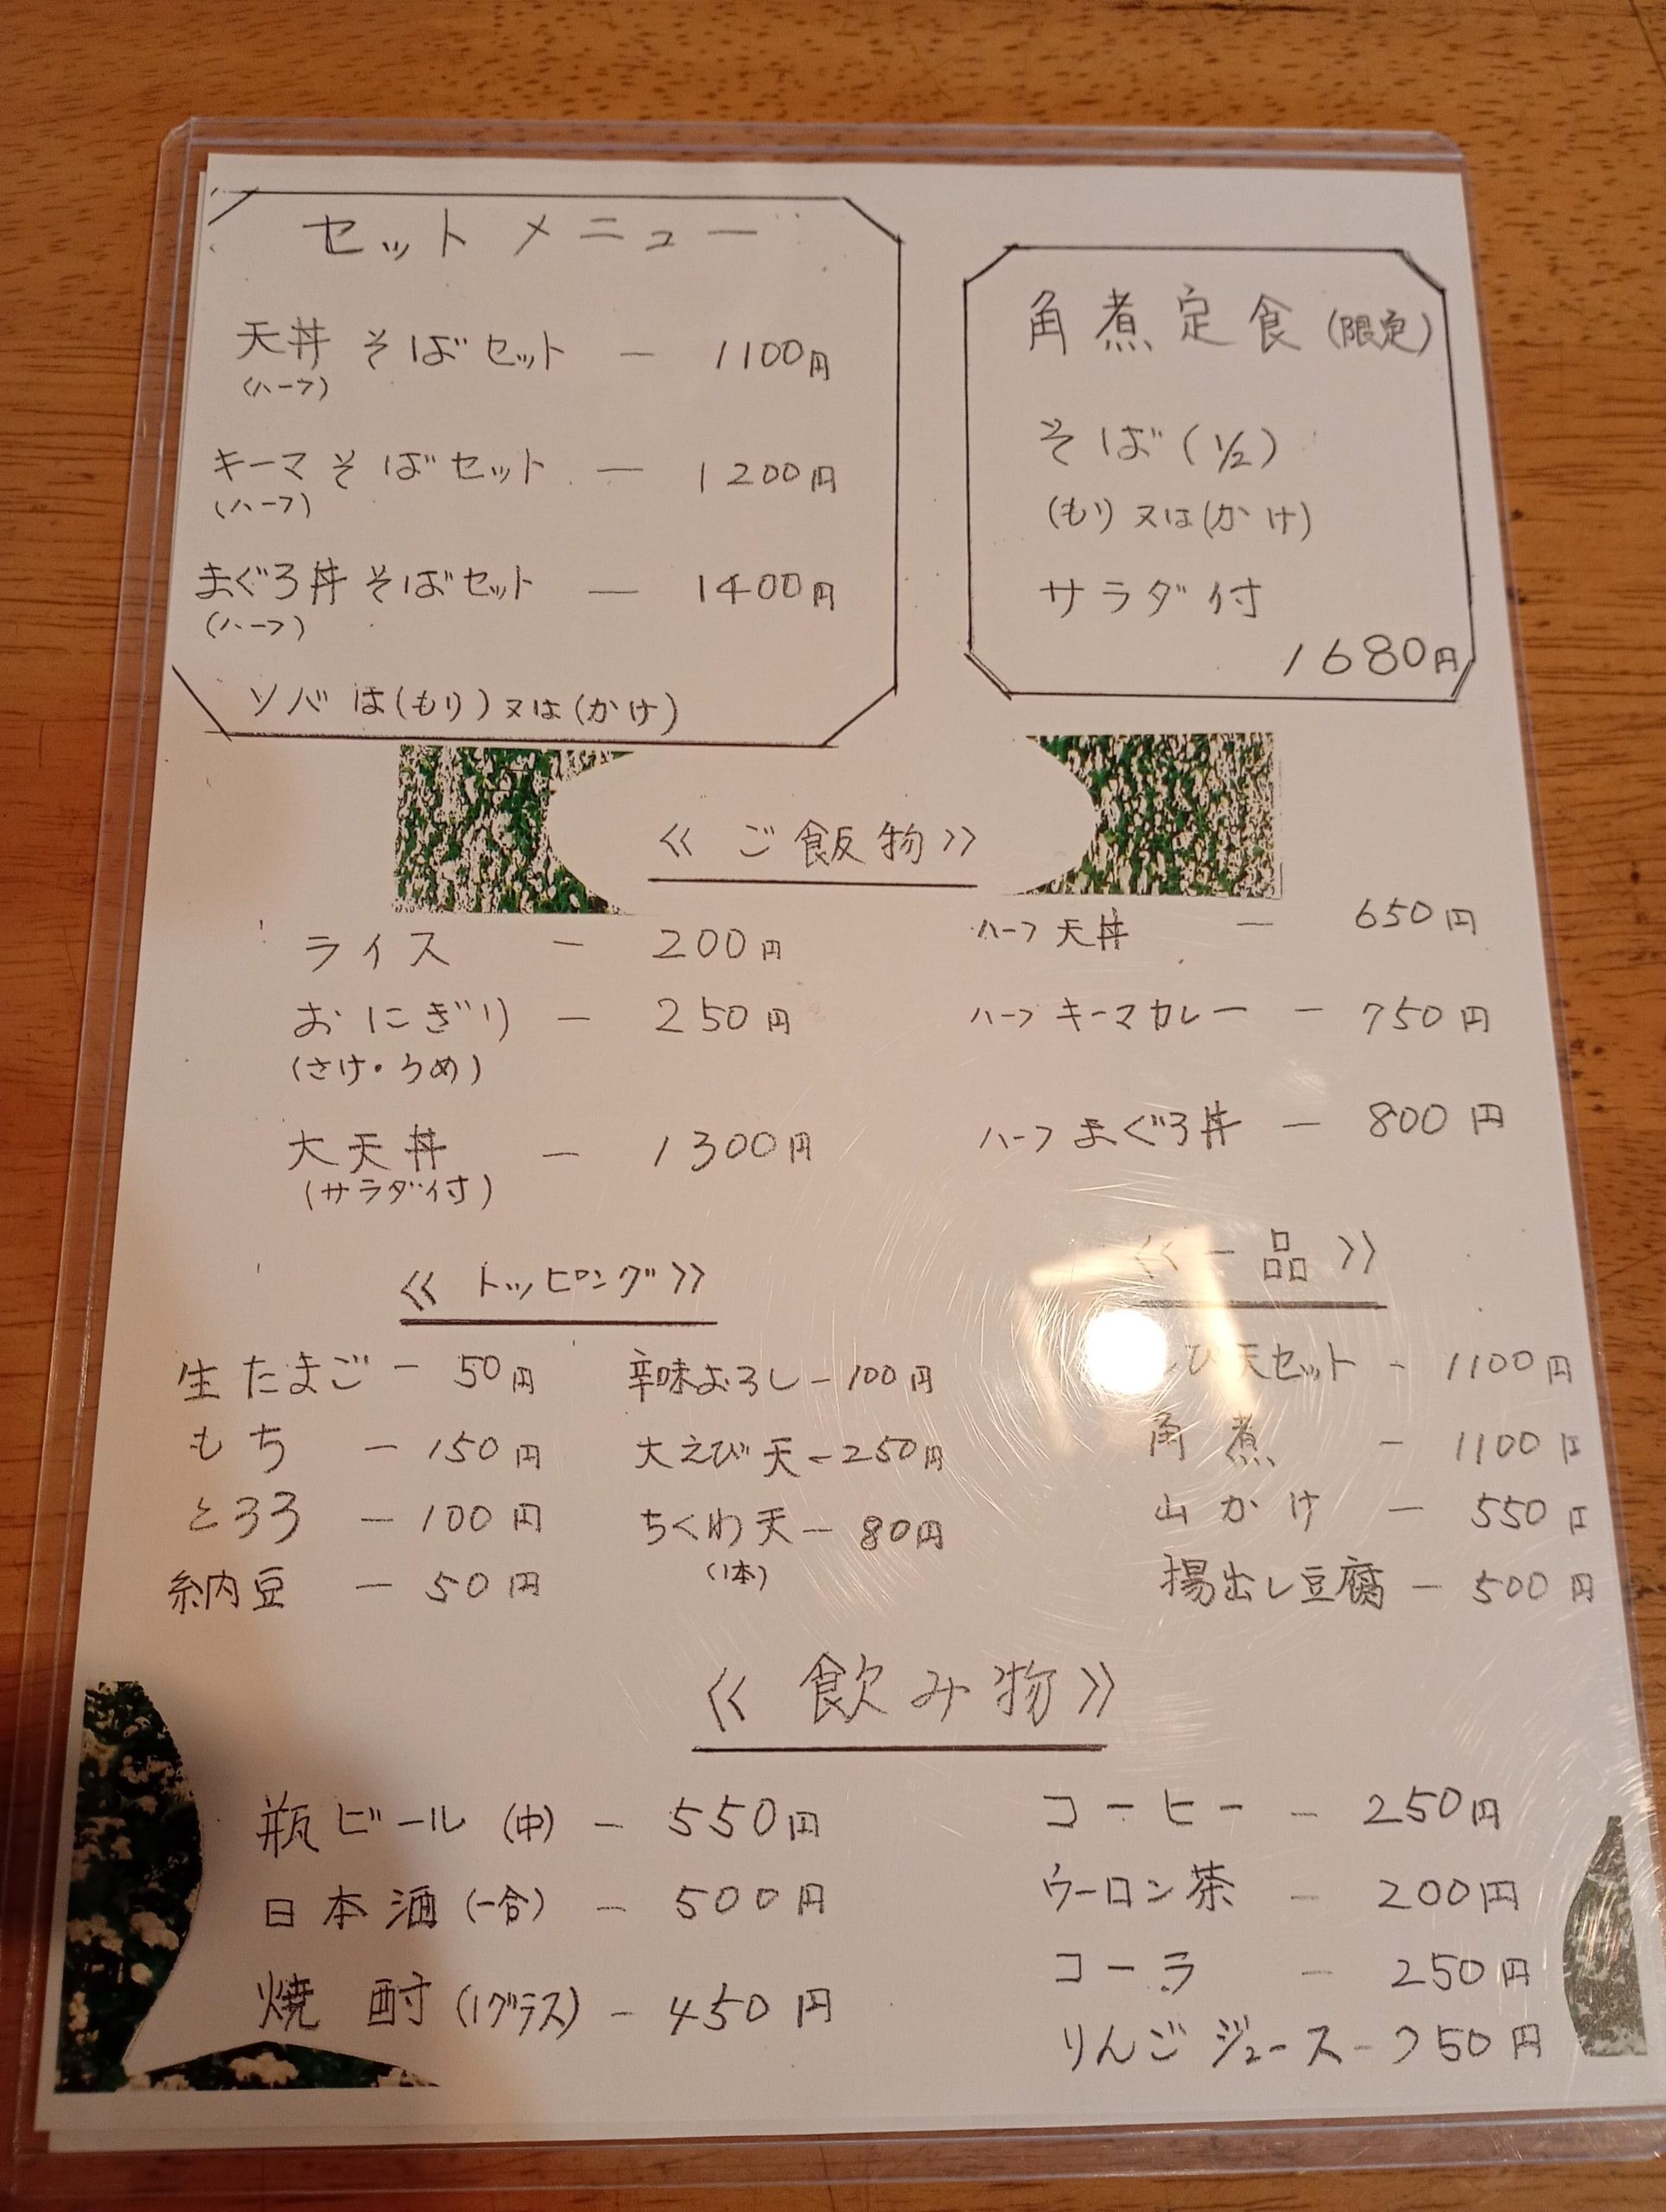 セットメニュー
天丼そばセット — 1100円
(ハーフ)
キーマそばセット — 1200円
(ハーフ)
まぐろ丼そばセット — 1400円
(ハーフ)
ソバは(もり)又は(かけ)
角煮定食(限定)
そば(1/2)
(もり)又は(かけ)
サラダ付
1680円
《ご飯物》
ライス — 200円
おにぎり — 250円
(さけ・うめ)
大天丼 — 1300円
(サラダ付)
ハーフ天丼 — 650円
ハーフキーマカレー — 750円
ハーフまぐろ丼 — 800円
《トッピング》
生たまご — 50円
もち — 150円
とろろ — 100円
納豆 — 50円
辛味おろし — 100円
大えび天 — 250円
ちくわ天 — 80円
(1本)
《一品》
び天セット — 1100円
角煮 — 1100円
山かけ — 550円
揚出し豆腐 — 500円
《飲み物》
瓶ビール(中) — 550円
日本酒(一合) — 500円
焼酎(1グラス) — 450円
コーヒー — 250円
ウーロン茶 — 200円
コーラ — 250円
りんごジュース — 50円